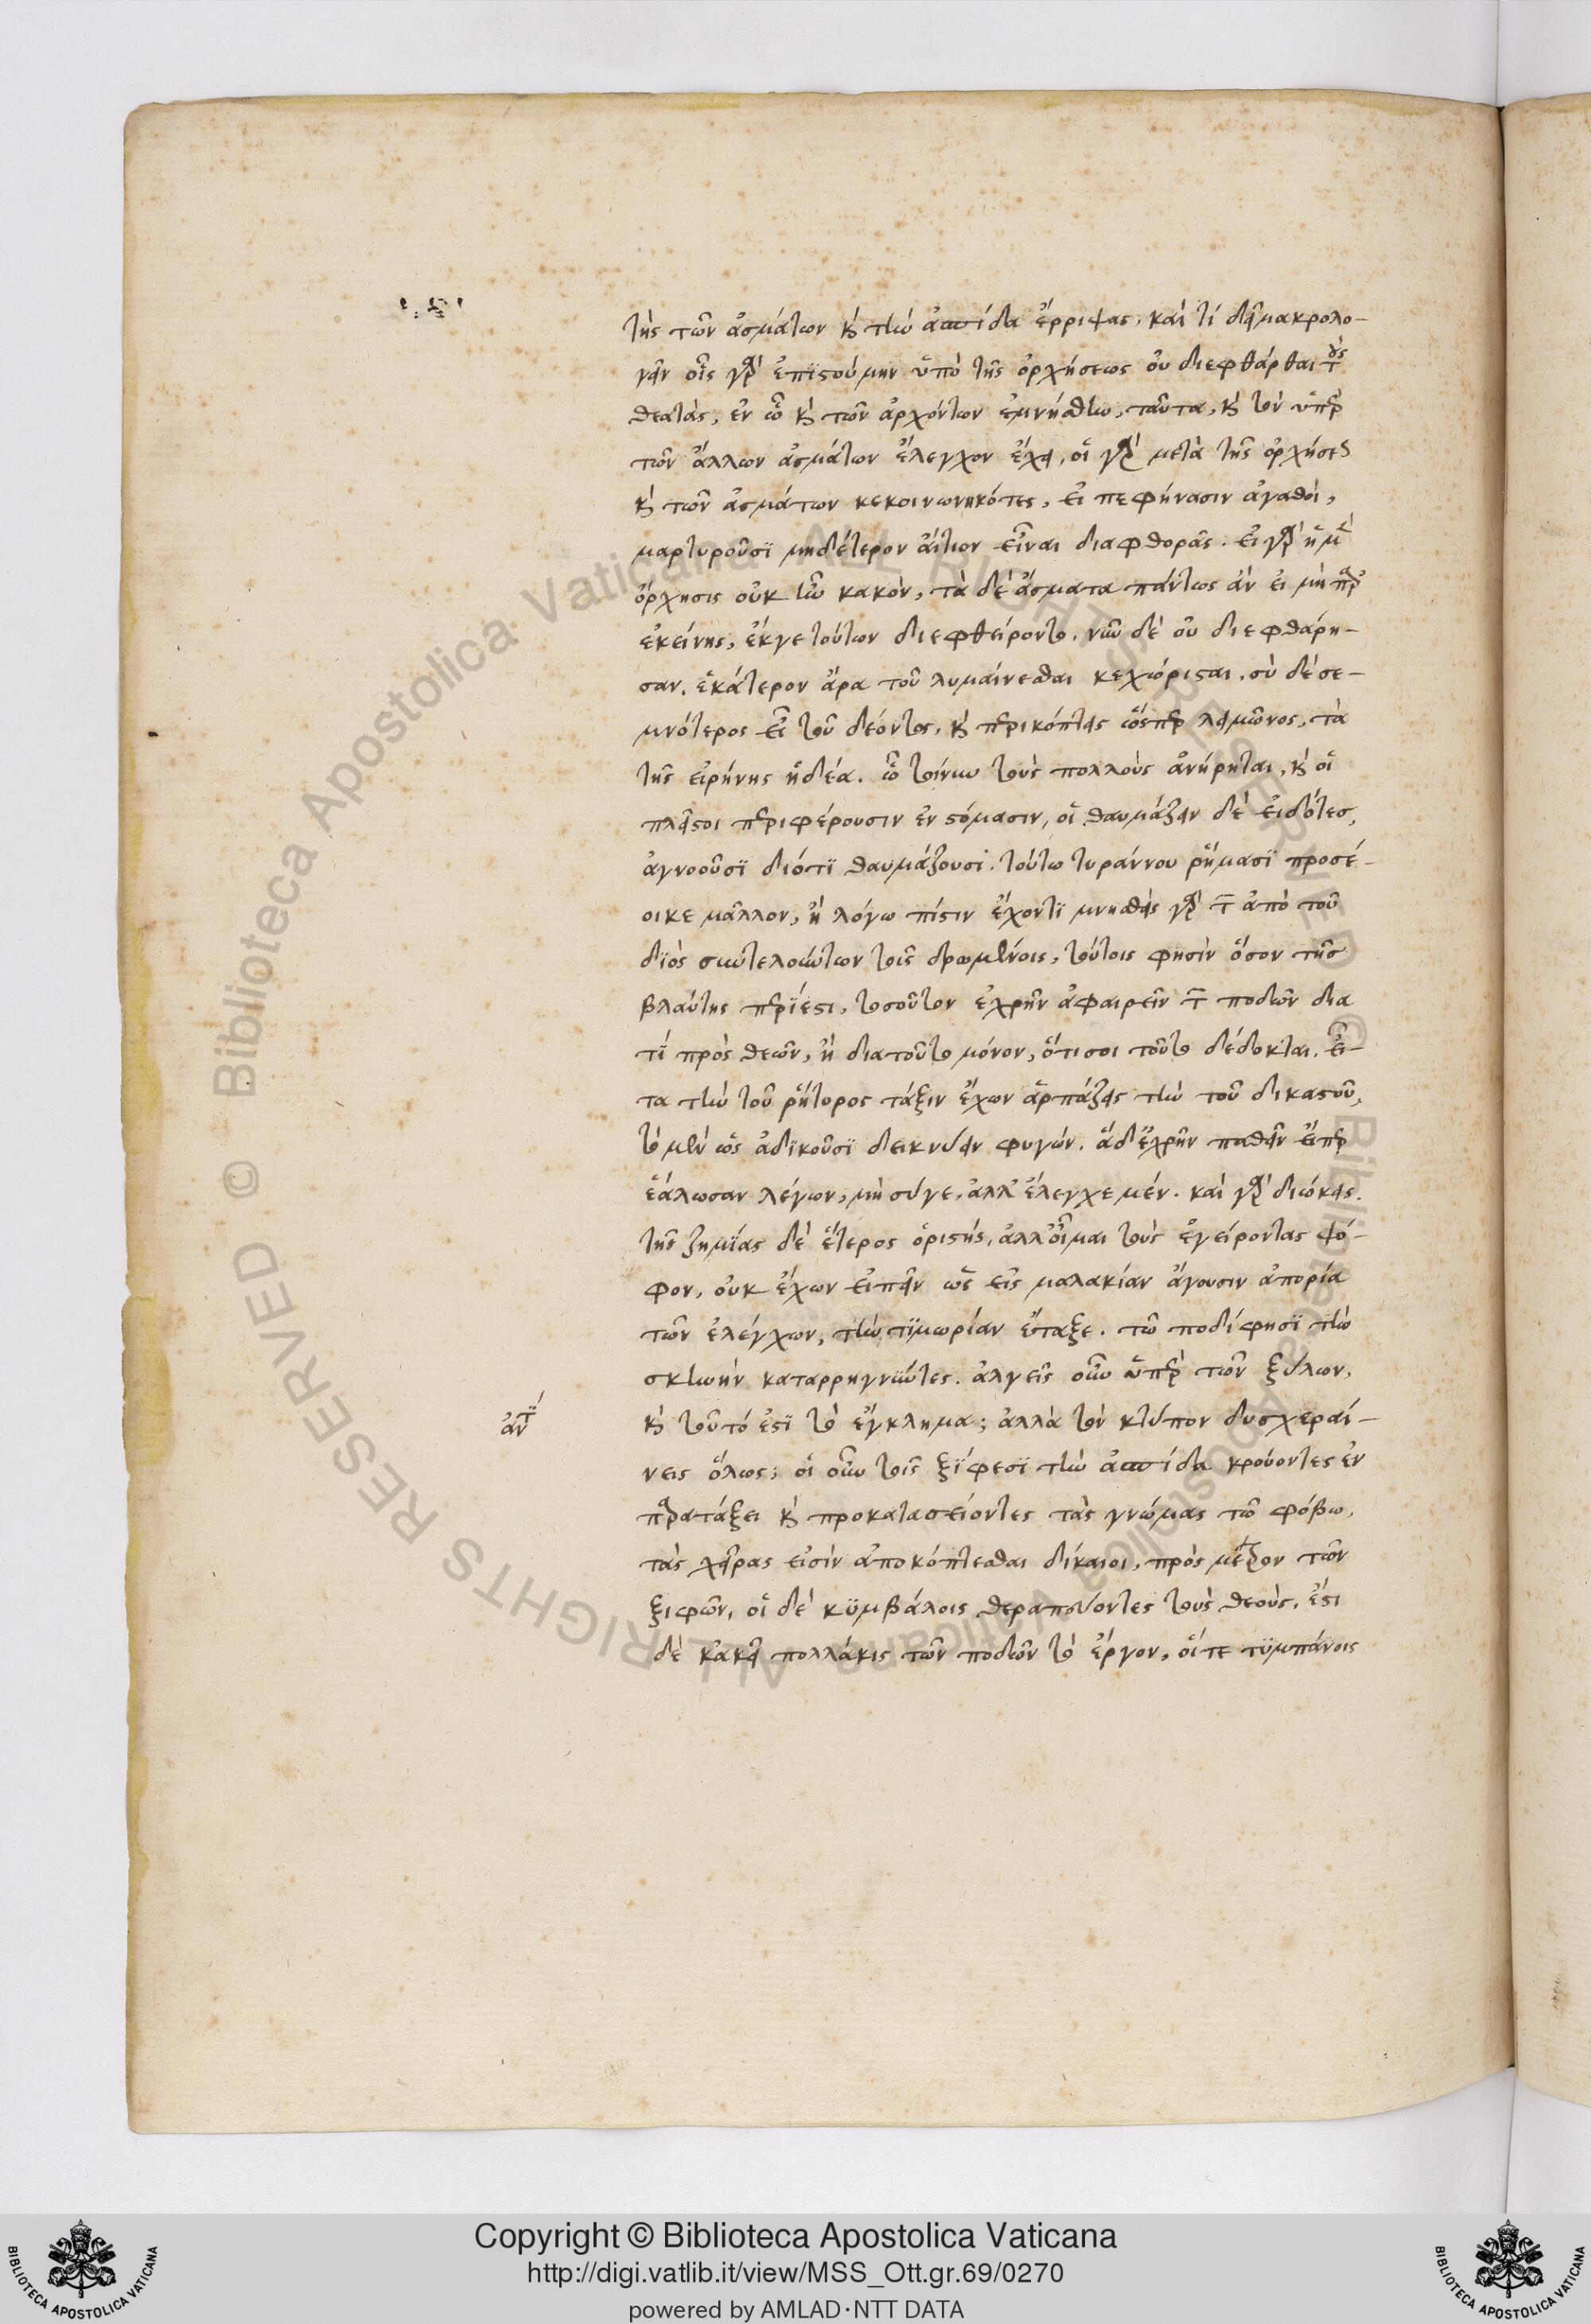 της των ἀσμάτων καὶ την ἀσπίδα ἔρριψας. καὶ τί δεῖ μακρολο-
γεῖν οἷς γὰρ ἐπιστούμην ὑπὸ τῆς ὀρχήσεως οὐ διεφθάρθαι τοὺς
θεατὰς, ἐν ᾧ καὶ τῶν ἀρχόντων ἐμνήσθην, ταῦτα, καὶ τὸν ὑπὲρ
τῶν ἄλλων ἀσμάτων ἔλεγχον ἔχει, οἱ γὰρ μετὰ τῆς ὀρχήσεως
καὶ τῶν ἀσμάτων κεκοινωνηκότες, εἰ πεφήνασιν ἀγαθοὶ,
μαρτυροῦσϊ μηδέτερον αἴτιον εἶναι διαφθορᾶς. εἰ γὰρ ἡ μὲν
ὄρχησις οὐκ ἦν κακὸν, τὰ δὲ ἄσματα πάντως ἂν εἰ μὴ παρ'
ἐκείνης, ἔκγε τούτων διεφθείροντο. νῦν δὲ οὐ διεφθάρη-
σαν. ἑκάτερον ἄρα τοῦ λυμαίνεσθαι κεχώρισται. σὺ δὲ σε-
μνότερος εἶ τοῦ δέοντος, καὶ περικόπτεις ὥσπερ λειμῶνος, τὰ
τῆς εἰρήνης ἡδέα. ᾧ τοίνυν τοὺς πολλοὺς ἀνήρηται, καὶ οἱ
πλεῖστοι περιφέρουσιν ἐν στόμασιν, οἱ θαυμάζειν δὲ εἰδότες,
ἀγνοοῦσϊ διότϊ θαυμάζουσι. τούτω τυράννου ῥήμασϊ προσέ-
οικε μᾶλλον, ἢ λόγω πίστιν ἔχοντϊ μνησθεὶς γὰρ τῶν ἀπὸ τοῦ
δϊὸς συντελούντων τοῖς δρωμένοις, τούτοις φησὶν ὅσον τῆς
βλαύτης περϊέστι, τοσοῦτον ἐχρῆν ἀφαιρεῖν τῶν ποδῶν δια
τϊ πρὸς θεῶν, ἢ διατοῦτο μόνον, ὅτισοι τοῦτο δέδοκται. εἶ-
τα τὴν τοῦ ῥήτορος τάξιν ἔχων ἁρπάζεις τὴν τοῦ δικαστοῦ,
τὸ μὲν ὡς ἀδϊκοῦσϊ δεικνύειν φυγών. ἃ δ' ἐχρῆν παθεῖν εἴπερ
ἑάλωσαν λέγων, μὴ σύγε. ἀλλ' ἔλεγχε μέν. καὶ γὰρ διώκεις.
τῆς ζημϊας δὲ ἕτερος ὁριστής. ἀλλ' οἶμαι τοὺς ἐγείροντας ψό-
φον, οὐκ ἔχων εἰπεῖν ὡς εἰς μαλακίαν ἄγουσιν ἀπορία
τῶν ἐλέγχων, τὴν τϊμωρίαν ἔταξε. τῶ ποδί φησϊ τὴν
σκηνὴν καταρρηγνύντες. ἀλγεῖς οὖν ὑπὲρ τῶν ξύλων,
ἀντϊ
καὶ τοῦτό ἐστϊ τὸ ἔγκλημα; ἀλλὰ τὸν κτύπον δυσχεραί-
νεις ὅλως; οἱ οὖν τοῖς ξϊφεσϊ τὴν ἀσπίδα κρούοντες ἐν
παρατάξει καὶ προκατασείοντες τὰς γνώμας τῶ φόβω,
τὰς χεῖρας εἰσὶν ἀποκόπτεσθαι δίκαιοι, πρὸς μεῖζον τῶν
ξιφῶν, οἱ δὲ κϋμβάλοις θεραπεύοντες τοὺς θεοὺς, ἔστι
δὲ κἀκεῖ πολλάκις τῶν ποδῶν τὸ ἔργον, οἵ τε τϋμπάνοις
Copyright © Biblioteca Apostolica Vaticana
http://digi.vatlib.it/view/MSS_Ott.gr.69/0270
powered by AMLAD·NTT DATA